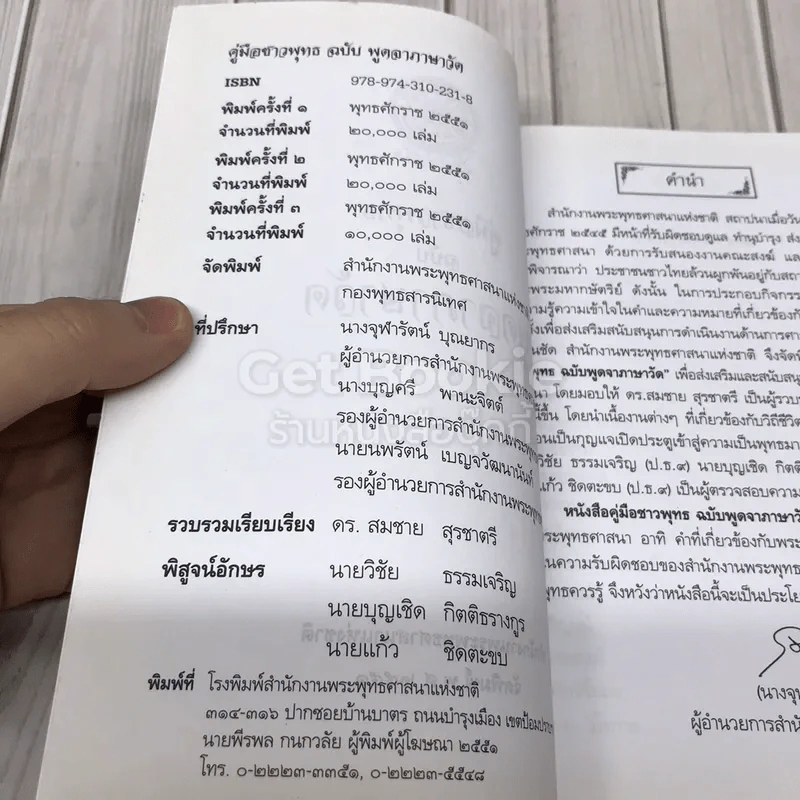 คู่มือชาวพุทธ ฉบับ พูดจาภาษาวัด
ISBN 978-974-310-231-8
พิมพ์ครั้งที่ ๑ พุทธศักราช ๒๕๕๑
จำนวนที่พิมพ์ ๒๐,๐๐๐ เล่ม
พิมพ์ครั้งที่ ๒ พุทธศักราช ๒๕๕๑
จำนวนที่พิมพ์ ๒๐,๐๐๐ เล่ม
พิมพ์ครั้งที่ ๓ พุทธศักราช ๒๕๕๑
จำนวนที่พิมพ์ ๑๐,๐๐๐ เล่ม
จัดพิมพ์ สำนักงานพระพุทธศาสนาแห่งชาติ
กองพุทธสารนิเทศ
ที่ปรึกษา นางจุฬารัตน์ บุณยากร
ผู้อำนวยการสำนักงานพระพุทธ
นางบุญศรี พานะจิตต์
รองผู้อำนวยการสำนักงานพระพุท
นายนพรัตน์ เบญจวัฒนานันท์
รองผู้อำนวยการสำนักงานพระพุทธ
รวบรวมเรียบเรียง ดร. สมชาย สุรชาตรี
พิสูจน์อักษร นายวิชัย ธรรมเจริญ
นายบุญเชิด กิตติธรางกูร
นายแก้ว ชิดตะขบ
พิมพ์ที่ โรงพิมพ์สำนักงานพระพุทธศาสนาแห่งชาติ
๓๑๔-๓๑๖ ปากซอยบ้านบาตร ถนนบำรุงเมือง เขตป้อมปราบ
นายพีรพล กนกวลัย ผู้พิมพ์ผู้โฆษณา ๒๕๕๑
โทร. ๐-๒๒๒๓-๓๓๕๑, ๐-๒๒๒๓-๕๕๔๘
Get Bookie
ร้านหนังสือบุ๊คกี้
คำนำ
สำนักงานพระพุทธศาสนาแห่งชาติ สถาปนาเมื่อวัน
ศักราช ๒๕๔๕ มีหน้าที่รับผิดชอบดูแล ทำนุบำรุง ส่ง
ะพุทธศาสนา ด้วยการรับสนองงานคณะสงฆ์ แล
พิจารณาว่า ประชาชนชาวไทยล้วนผูกพันอยู่กับสถา
ะพระมหากษัตริย์ ดังนั้น ในการประกอบกิจกรรม
ามรู้ความเข้าใจในคำและความหมายที่เกี่ยวข้องกับ
ังเพื่อส่งเสริมสนับสนุนการดำเนินงานด้านการศา
นชัด สำนักงานพระพุทธศาสนาแห่งชาติ จึงจัดพิ
พุทธ ฉบับพูดจาภาษาวัด" เพื่อส่งเสริมและสนับสนุ
นา โดยมอบให้ ดร.สมชาย สุรชาตรี เป็นผู้รวบร
นี้ขึ้น โดยนำเนื้องานต่างๆ ที่เกี่ยวข้องกับวิถีชีวิต
อนเป็นกุญแจเปิดประตูเข้าสู่ความเป็นพุทธมา
วิชัย ธรรมเจริญ (ป.ธ.๙) นายบุญเชิด กิตติ
แก้ว ชิดตะขบ (ป.ธ.๙) เป็นผู้ตรวจสอบความ
หนังสือคู่มือชาวพุทธ ฉบับพูดจาภาษาวั
ะพุทธศาสนา อาทิ คำที่เกี่ยวข้องกับพระ
นความรับผิดชอบของสำนักงานพระพุทธ
พุทธควรรู้ จึงหวังว่าหนังสือนี้จะเป็นประโย
(นางจุฬ
ผู้อำนวยการสำนั